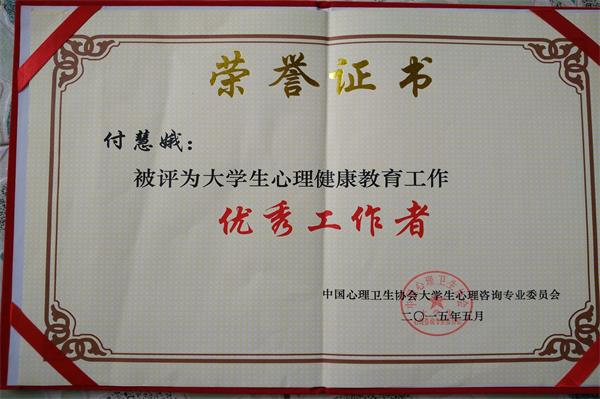 荣誉证书
付慧娥：
被评为大学生心理健康教育工作
优秀工作者
中国心理卫生协会大学生心理咨询专业委员会
二〇一五年五月